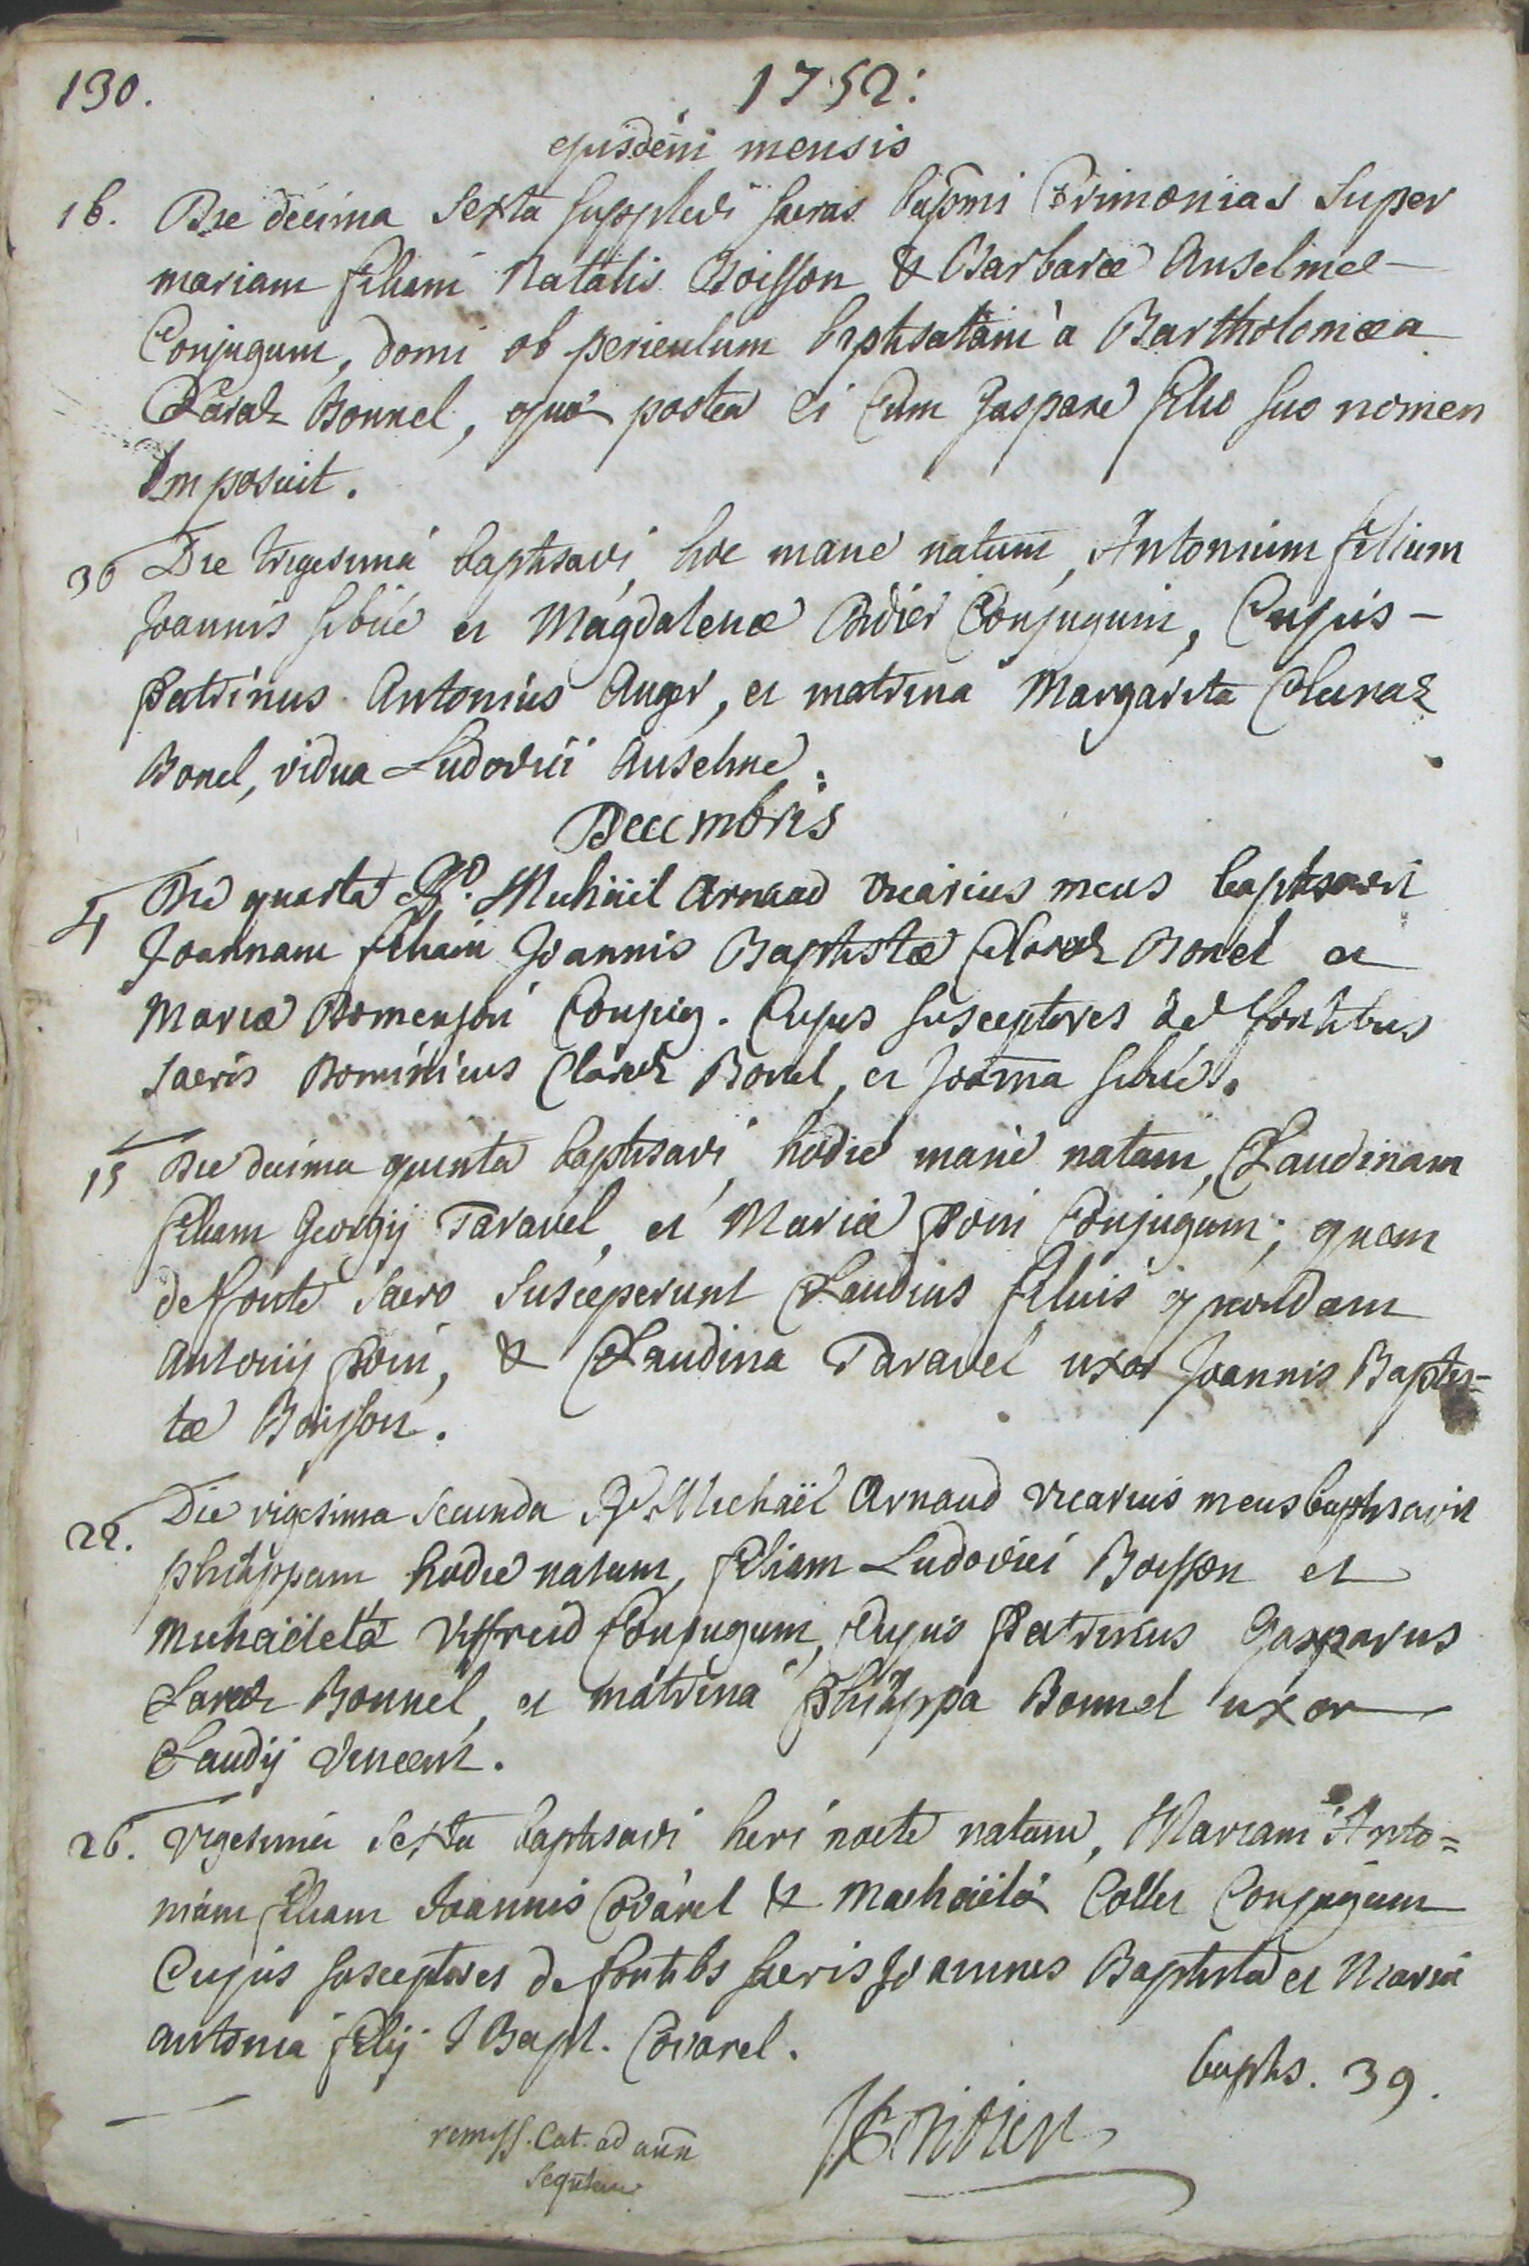 130.
1752:
ejusdem mensis
16. Die decima Sexta supplevi sacras bapmi Cerimonias Super
mariam filiam Natalis Boisson & Barbaræ Anselme
Conjugum, domi ob periculum baptisatam a Bartholomæa
Claraz Bonnel, quæ postea ei Cum Gaspare filio suo nomen
Imposuit.
30 Die trigesima baptisavi, hoc mane natum, Antonium filium
Joannis Sibué et Magdalenæ Didier Conjugum, Cujus
Patrinus Antonius Auger, et matrina Margarita Claraz
Bonel, vidua Ludovici Anselme.
Decembris
4 Die quarta Rd. Michäel Arnaud vicarius meus baptisavit
Joannam filiam Joannis Baptistæ Claraz Bonel et
Mariæ Domenjon Conjug. Cujus susceptores de fontibus
sacris Dominicus Claraz Bonel, et Joanna Sibué.
15 Die decima quinta baptisavi, hodie mane natam, Claudinam
filiam Georgij Taravel, et Mariæ Poin Conjugum; quam
de fonte sacro Susceperunt Claudius filius quondam
Antonij Poin, & Claudina Taravel uxor Joannis Baptis-
tæ Boisson.
22. Die vigesima secunda Rd. Michaël Arnaud vicarius meus baptisavit
philippam hodie natam, filiam Ludovici Boisson et
Michaëlæ Viffreid Conjugum, Cujus Patrinus Gasparus
Claraz Bonnel, et matrina Philippa Bonnel uxor
Claudij Vincent.
26. Vigesima Sexta baptisavi heri nocte natam, Mariam Anto=
niam filiam Joannis Covarel & Machaëlæ Collet Conjugum
Cujus susceptores de fontibs sacris Joannes Baptista et Maria
antonia filij J Bapt. Covarel.
bapts. 39.
remiss. Cat. ad ann
sequtem